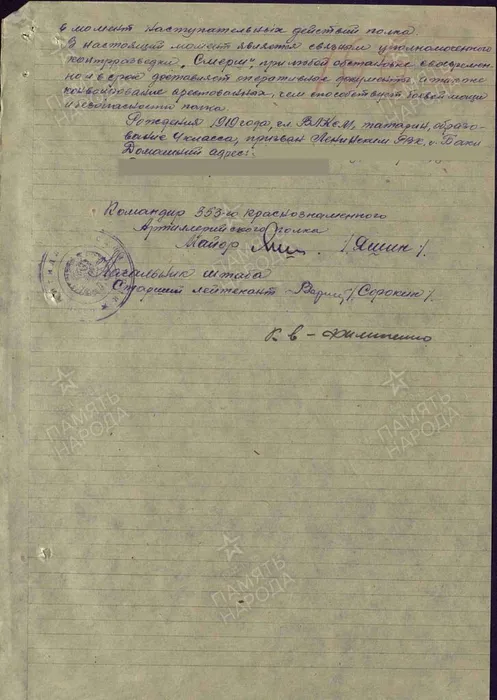 в момент наступательных действий полка.
В настоящий момент является связным уполномоченного
контрразведки „Смерш", при любой обстановке своевремен
но и в срок доставляет оперативные документы, а так же
конвоирование арестованных, чем способствует боевой мощи
и безопасности полка.
Рождения 1919 года, чл. ВЛКСМ, татарин, образо-
вание 4 класса, призван Ленинским РВК, г. Баку
Домашний адрес:
Командир 353-го Краснознаменного
Артиллерийского полка
Майор /Яшин/.
Начальник штаба
Старший лейтенант /Сорокин/.
К в - Филипенко
ПАМЯТЬ
НАРОДА
ПАМЯТЬ
НАРОДА
ПАМЯТЬ
НАРОДА